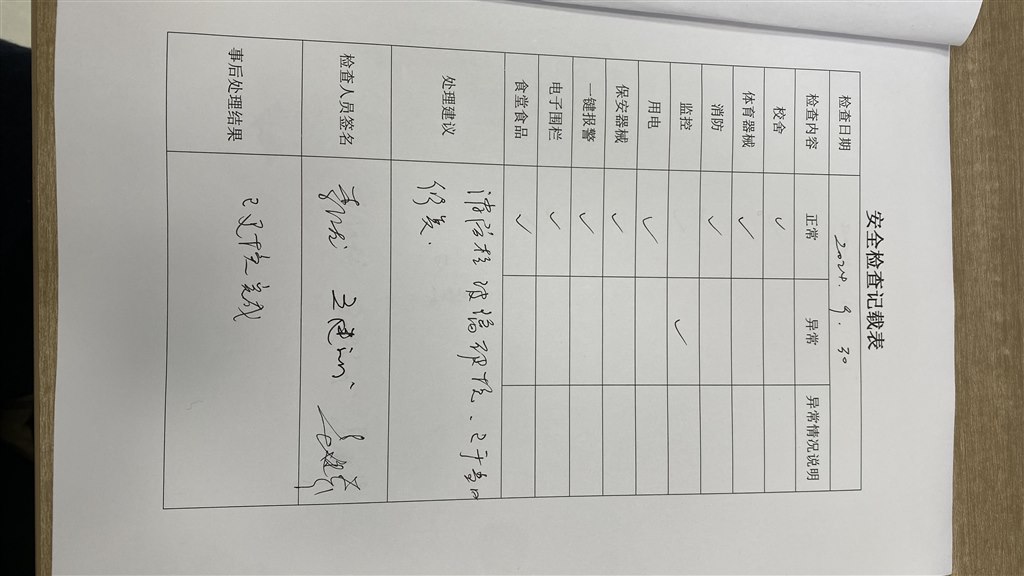 安全检查记载表
检查日期 2024.9.30
检查内容 正常 异常 异常情况说明
校舍 ✓
体育器械 ✓
消防 ✓
监控 ✓
用电 ✓
保安器械 ✓
一键报警 ✓
电子围栏 ✓
食堂食品 ✓
处理建议 消防栓玻璃破 已于当日
修
检查人员签名
事后处理结果 已更换完成